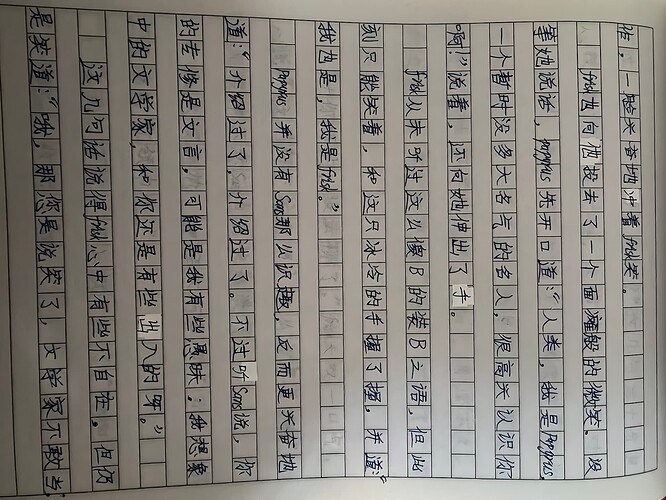 一脸兴奋地冲着frisk笑。
frisk也向他投去了一个面瘫般的微笑。没
等她说话，papyrus先开口道：“人类，我是Papyrus，
一个暂时没多大名气的名人，很高兴认识你
啊！”说着，还向她伸出了手。
frisk从未听过这么傻B的装B之语，但此
刻只能笑着，和这只冰冷的手握了握，并道：“
我也是，我是frisk。”
Papyrus并没有Sans那么识趣，反而更兴奋地
道：“介绍过了，介绍过了。不过听Sans说，你
的专修是文言，可能是我有些愚昧：我想象
中的文学家，和你还是有些出入的呀。”
这几句话说得frisk心中有些不自在。但仍
是笑道：“哦，那您是说笑了，文学家不敢当，